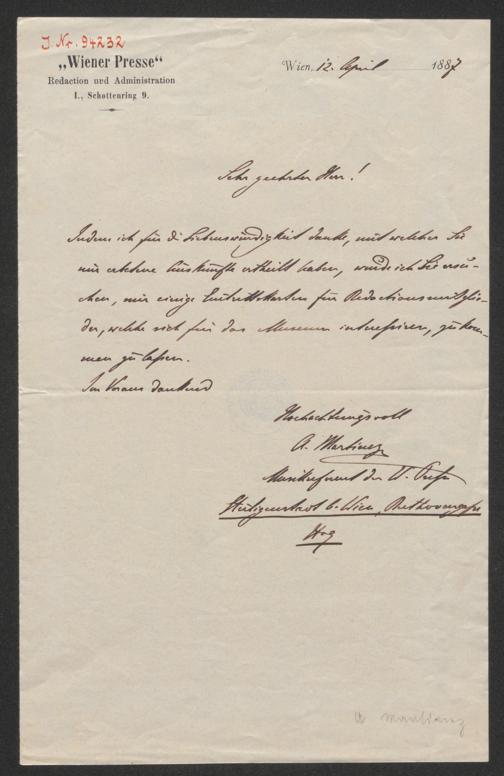 J. Nr. 94232
„Wiener Presse“
Redaction und Administration
I., Schottenring 9.
Wien, 12. April 1887
Sehr geehrter Herr!
Indem ich für die Liebenswürdigkeit danke, mit welcher Sie
mir erbetene Auskünfte ertheilt haben, würde ich Sie ersu-
chen, mir einige Eintrittskarten für Redactionsmitglie-
der, welche sich für das Museum interessiren, zukom-
men zu lassen.
Im Voraus dankend
Hochachtungsvoll
A. Martinez
Musikreferent der W. Presse
Heiligenstadt b. Wien, Beethovengasse